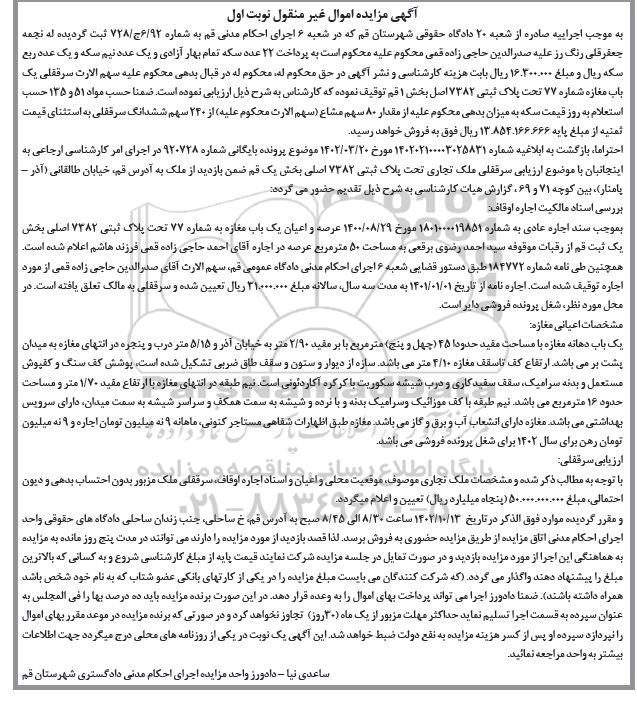 آگهی مزایده اموال غیر منقول نوبت اول
به موجب اجراییه صادره از شعبه ۲۰ دادگاه حقوقی شهرستان قم که در شعبه ۶ اجرای احکام مدنی قم به شماره ۶/۹۲ج/۷۲۸ ثبت گردیده له نجمه
جعفرقلی رنگ رز علیه صدرالدین حاجی زاده قمی محکوم علیه محکوم است به پرداخت ۲۲ عدد سکه تمام بهار آزادی و یک عدد نیم سکه و یک عدد ربع
سکه ریال و مبلغ ۱۶.۳۰۰.۰۰۰ ریال بابت هزینه کارشناسی و نشر آگهی در حق محکوم له، محکوم له در قبال بدهی محکوم علیه سهم الارث سرقفلی یک
باب مغازه شماره ۷۷ تحت پلاک ثبتی ۷۳۸۲ اصل بخش ۱ قم توقیف نموده که کارشناس به شرح ذیل ارزیابی نموده است. ضمنا حسب مواد ۵۱ و ۱۳۵ حسب
استعلام به روز قیمت سکه به میزان بدهی محکوم علیه از مقدار ۸۰ سهم مشاع (سهم الارث محکوم علیه) از ۲۴۰ سهم ششدانگ سرقفلی به استثنای قیمت
ثمنیه از مبلغ پایه ۱۳.۸۵۴.۱۶۶.۶۶۶ ریال فوق به فروش خواهد رسید.
احتراما، بازگشت به ابلاغیه شماره ۱۴۰۲۰۲۱۰۰۰۰۳۰۲۵۸۳۱ مورخ ۱۴۰۲/۰۳/۲۰ موضوع پرونده بایگانی شماره ۹۲۰۷۲۸ در اجرای امر کارشناسی ارجاعی به
اینجانبان با موضوع ارزیابی سرقفلی ملک تجاری تحت پلاک ثبتی ۷۳۸۲ اصلی بخش یک قم ضمن بازدید از ملک به آدرس قم، خیابان طالقانی (آذر –
پامنار)، بین کوچه ۷۱ و ۶۹ ، گزارش هیات کارشناسی به شرح ذیل تقدیم حضور می گردد:
بررسی اسناد مالکیت اجاره اوقاف:
بموجب سند اجاره عادی به شماره ۱۸۰۱۰۰۰۰۱۹۸۵۱ مورخ ۱۴۰۰/۰۸/۲۹ عرصه و اعیان یک باب مغازه به شماره ۷۷ تحت پلاک ثبتی ۷۳۸۲ اصلی بخش
یک ثبت قم از رقبات موقوفه سید احمد رضوی برقعی به مساحت ۵۰ مترمربع عرصه در اجاره آقای احمد حاجی زاده قمی فرزند هاشم اعلام شده است.
همچنین طی نامه شماره ۱۸۴۷۷۲ طبق دستور قضایی شعبه ۶ اجرای احکام مدنی دادگاه عمومی قم، سهم الارث آقای صدرالدین حاجی زاده قمی از مورد
اجاره توقیف شده است. اجاره نامه از تاریخ ۱۴۰۱/۰۱/۰۱ به مدت سه سال، سالانه مبلغ ۳۱.۰۰۰.۰۰۰ ریال تعیین شده و سرقفلی به مالک تعلق یافته است. در
محل مورد نظر، شغل پرونده فروشی دایر است.
مشخصات اعیانی مغازه:
یک باب دهانه مغازه با مساحت مفید حدودا ۴۵ (چهل و پنج) مترمربع با بر مفید ۲/۹۰ متر به خیابان آذر و ۵/۱۵ متر درب و پنجره در انتهای مغازه به میدان
پشت بر می باشد. ارتفاع کف تاسقف مغازه ۴/۱۰ متر می باشد. سازه از دیوار و ستون و سقف طاق ضربی تشکیل شده است، پوشش کف سنگ و کفپوش
مستعمل و بدنه سرامیک، سقف سفیدکاری و درب شیشه سکوریت با کرکره آکاردئونی است. نیم طبقه در انتهای مغازه با ارتفاع مفید ۱/۷۰ متر و مساحت
حدود ۱۶ مترمربع می باشد. نیم طبقه با کف موزائیک وسرامیک بدنه و با نرده و شیشه به سمت همکف و سراسر شیشه به سمت میدان، دارای سرویس
بهداشتی می باشد. مغازه دارای انشعاب آب و برق و گاز می باشد. مغازه طبق اظهارات شفاهی مستاجر کنونی، ماهانه ۹ نه میلیون تومان اجاره و ۹ نه میلیون
تومان رهن برای سال ۱۴۰۲ برای شغل پرونده فروشی می باشد.
ارزیابی سرقفلی:
با توجه به مطالب ذکر شده و مشخصات ملک تجاری موصوف، موقعیت محلی و اعیان و اسناد اجاره اوقاف، سرقفلی ملک مزبور بدون احتساب بدهی و دیون
احتمالی، مبلغ ۵۰.۰۰۰.۰۰۰.۰۰۰ (پنجاه میلیارد ریال) تعیین و اعلام میگردد.
و مقرر گردیده موارد فوق الذکر در تاریخ ۱۴۰۲/۱۰/۱۳ ساعت ۸/۳۰ الی ۸/۴۵ صبح به آدرس قم، خ ساحلی، جنب زندان ساحلی دادگاه های حقوقی واحد
اجرای احکام مدنی اتاق مزایده از طریق مزایده حضوری به فروش برسد. لذا قصد بازدید از مورد مزایده را دارند می توانند در مدت پنج روز مانده به مزایده
به هماهنگی این اجرا از مورد مزایده بازدید و در صورت تمایل در جلسه مزایده شرکت نمایند قیمت پایه از مبلغ کارشناسی شروع و به کسانی که بالاترین
مبلغ را پیشنهاد دهند واگذار می گردد. (که شرکت کنندگان می بایست مبلغ مزایده را در یکی از کارتهای بانکی عضو شتاب که به نام خود شخص باشد
همراه داشته باشند). ضمنا دادورز اجرا می تواند پرداخت بهای اموال را به وعده قرار دهد. در این صورت برنده مزایده باید ده درصد بها را فی المجلس به
عنوان سپرده به قسمت اجرا تسلیم نماید حداکثر مهلت مزبور از یک ماه (۳۰روز) تجاوز نخواهد کرد و در صورتی که برنده مزایده در موعد مقرر بهای اموال
را نپردازد سپرده او پس از کسر هزینه مزایده به نفع دولت ضبط خواهد شد. این آگهی یک نوبت در یکی از روزنامه های محلی درج میگردد جهت اطلاعات
بیشتر به واحد مراجعه نمائید.
ساعدی نیا – دادورز واحد مزایده اجرای احکام مدنی دادگستری شهرستان قم
ParsNamadData
پایگاه اطلاع رسانی مناقصه و مزایده
۰۲۱-۸۸۳۴۹۶۷۰-۵